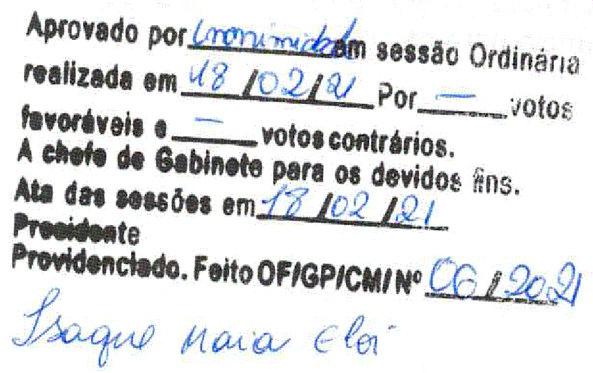 Aprovado por Unanimidade em sessão Ordinária
realizada em 18/02/21 Por — votos
favoráveis e — votos contrários.
A chefe de Gabinete para os devidos fins.
Ata das sessões em 18/02/21
Presidente
Providenciado. Feito OF/GP/CMI Nº 06/2021
Isaque Maia Eloi